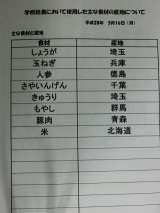 学校給食において使用した主な食材の産地について
平成28年 5月16日（月）
主な食材の産地
食材 産地
しょうが 埼玉
玉ねぎ 兵庫
人参 徳島
さやいんげん 千葉
きゅうり 埼玉
もやし 群馬
豚肉 青森
米 北海道